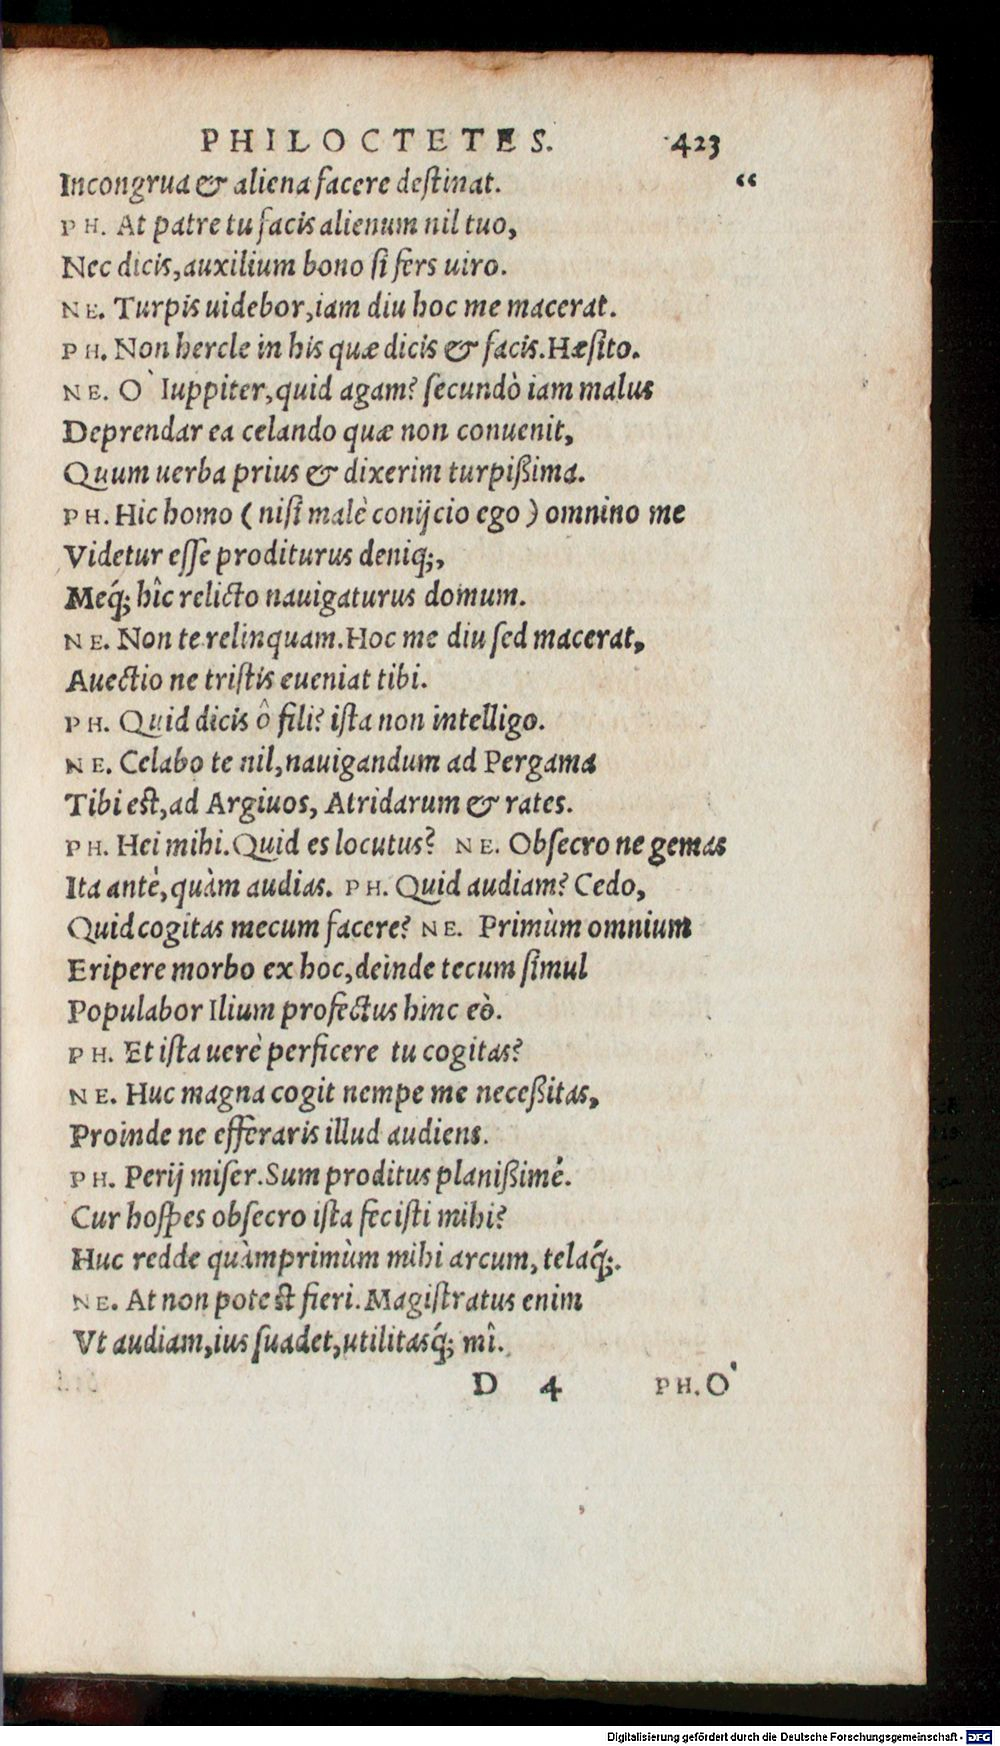 PHILOCTETES. 423
Incongrua & aliena facere destinat. “
PH. At patre tu facis alienum nil tuo,
Nec dicis, auxilium bono si fers uiro.
NE. Turpis uidebor, iam diu hoc me macerat.
PH. Non hercle in his quæ dicis & facis. Hæsito.
NE. O` Iuppiter, quid agam? secundò iam malus
Deprendar ea celando quæ non conuenit,
Quum uerba prius & dixerim turpißima.
PH. Hic homo ( nisi malè conijcio ego ) omnino me
Videtur esse proditurus deniq;,
Meq́; hîc relicto nauigaturus domum.
NE. Non te relinquam. Hoc me diu sed macerat,
Auectio ne tristis eueniat tibi.
PH. Quid dicis ô fili? ista non intelligo.
NE. Celabo te nil, nauigandum ad Pergama
Tibi est, ad Argiuos, Atridarum & rates.
PH. Hei mihi. Quid es locutus? NE. Obsecro ne gemas
Ita antè, quàm audias. PH. Quid audiam? Cedo,
Quid cogitas mecum facere? NE. Primùm omnium
Eripere morbo ex hoc, deinde tecum simul
Populabor Ilium profectus hinc eò.
PH. Et ista uerè perficere tu cogitas?
NE. Huc magna cogit nempe me neceßitas,
Proinde ne efferaris illud audiens.
PH. Perij miser. Sum proditus planißimé.
Cur hospes obsecro ista fecisti mihi?
Huc redde quàmprimùm mihi arcum, telaq́;.
NE. At non potest fieri. Magistratus enim
Vt audiam, ius suadet, utilitasq́; mî.
D 4 PH. O`
Digitalisierung gefördert durch die Deutsche Forschungsgemeinschaft - DFG